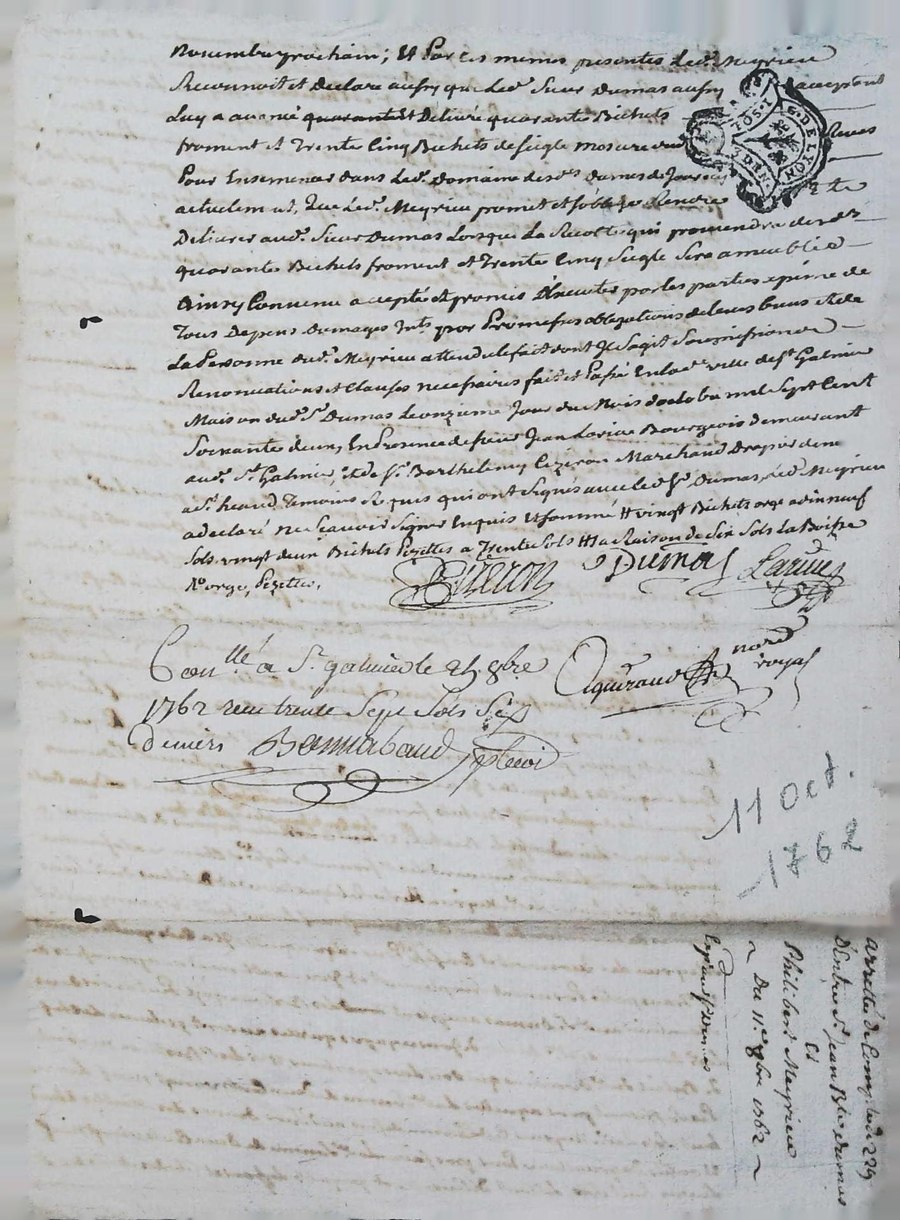 Novembre prochain; Et Par ces memes presentes Led. Meyrieu
Reconnoit et Declare aussy que Led. Sieur Dumas aussy acceptant
Luy a avancé quarante et Delivré quarante Bichets
froment et Trente Cinq Bichets de seigle mesure dud.
Pour Ensemencer dans Led. Domaine des
actuelement, Que Led. Meyrieu promet et s'oblige Rendre Et
Delivrer aud. Sieur Dumas Lorsque La Recolte qui proviendra desd.
quarante Bichets froment et Trente Cinq Seigle Sera ameublie
Ainsy Convenu accepté et promis D'Executer par les parties a peine de
Tous Depens Domages Int. par Promesses obligations de leurs biens et de
La Personne dud. Meyrieu attendu le fait dont Il S'agit Soumissions
Renonciations et Clauses necessaires fait et Passé En lad. ville de St. Galmier
Maison dud. Sr. Dumas Le onzieme Jour du Mois doctobre mil Sept Cent
Soixante deux, En Presence de sieur Jean Larive Bourgeois demeurant
aud. St. Galmier, et de Sr. Barthelemy Cizeron Marchand Drapier dem.
a St. heand Temoins Requis qui ont Signés avec led. Sr. Dumas, led. Meyrieu
a declaré ne Scavoir Signer Enquis et sommé # vingt Bichets orge a dix neuf
Sols vingt deux Bichets Pezettes a Trente Sols ## a Raison de Six Sols La
Ro. orge, Pezettes,
Cizeron Dumas Larive
Conllé a St. galmier le 21. 8bre
1762 recu trente Sept Sols Six
deniers
Aguiraud nore royal
G. DE LYON
SOL
DEN.
11 Oct.
1762
arretté de Compte 229
D'Entre Sr. Jean Bte dumas
Et
Philibert Meyrieu
~ Du 11e. 8bre 1762 ~